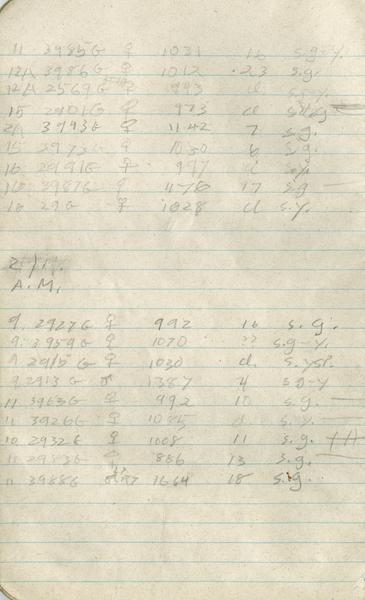 11 3985G ♀ 1031 16 s.g-y.
12A 3986G ♀ 1012 .23 s.g.
12A 2569G ♀ 993 d
15 2901G ♀ 973 d
2A 3993G ♀ 1142 7 s.g.
15 2973G ♀ 1030 6 s.g.
16 2991G ♀ 997 d s.y.
3987G ♀ 1178 17 s.g
18 29 G ♀ 1028 d s.y.
A.M.
9. 2927G ♀ 992 16 s.g.
9. 3959G ♀ 1070 ?? s.g-y.
9 2915G ♀ 1030 d. s.ysl.
9 2913G ♂ 1387 4 s.g-y
11 3963G ♀ 992 10 s.g.
11 3926G ♀ 1085 d s.y.
10 2932G ♀ 1008 11 s.g.
11 2983G ♀ 886 13 s.g.
11 3988G 1664 18 s.g.